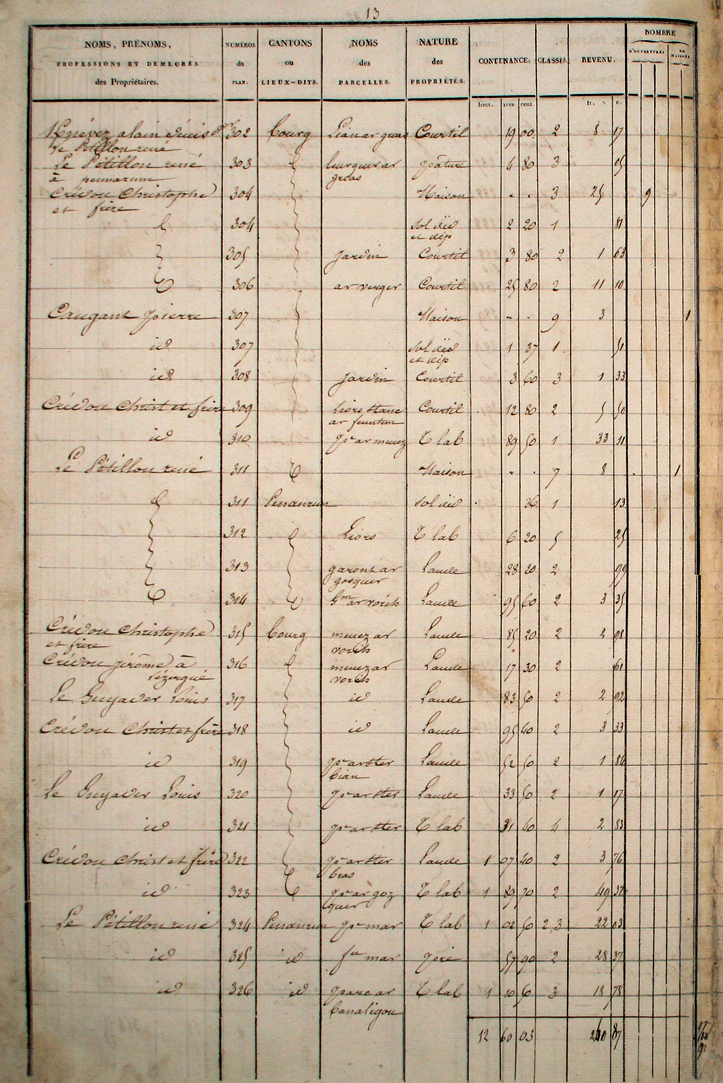 13
NOMS, PRÉNOMS, PROFESSIONS ET DEMEURES des Propriétaires. NUMÉROS du PLAN. CANTONS ou LIEUX-DITS. NOMS des PARCELLES. NATURE des PROPRIÉTÉS. CONTENANCE. CLASSES. REVENU. NOMBRE D'OUVERTURES DE MAISONS
hect. ares cent. fr. c.
302 bourg Liars ar groas Courtil 19 00 2 8 17
le Pétillon rené
Le Pétillon rené 303 ar pâture 4 80 3 15
à penanrun groas
Crédou Christophe 304 Maison - - 3 25 9
et frère
304 sol id 2 20 1 81
et dép
305 jardin Courtil 3 80 2 1 63
306 ar verger Courtil 25 80 2 11 10
Caugant pierre 307 Maison - - 9 3 1
id 307 sol id 1 37 1 51
et dép
id 308 jardin Courtil 3 60 3 1 33
Crédou Christ et frère 309 Liors Courtil 12 80 2 5 50
ar feunten
id 310 pr ar menez T lab 89 50 1 33 11
Le Pétillon rené 311 Maison - - 7 8 1
311 Penanrun sol id 36 1 13
312 Liors T lab 6 20 5 25
313 garont ar Lande 28 20 2 99
gosquer
314 ar roc'h Lande 95 60 2 3 35
Crédou Christophe 315 bourg menez ar Lande 85 20 2 2 98
et frère roc'h
Crédou jérôme à 316 menez ar Lande 17 30 2 61
Lézergué roc'h
Le Guyader Louis 317 id Lande 83 50 2 2 92
Crédou Christ et frère 318 id Lande 95 40 2 3 33
id 319 pr ar ster Lande 52 50 2 1 84
bian
Le Guyader Louis 320 pr ar ster Lande 33 50 2 1 17
id 321 pr ar ster T lab 31 60 4 2 83
Crédou Christ et frère 322 pr ar ster Lande 1 07 40 2 3 76
bras
id 323 pr ar goz T lab 1 89 70 2 49 32
quer
Le Pétillon rené 324 Penanrun pr mar T lab 1 02 50 2,3 22 03
id 325 id mar pré 57 90 2 28 37
id 326 id parc ar T lab 1 10 50 3 18 78
banaligou
12 60 03 240 87